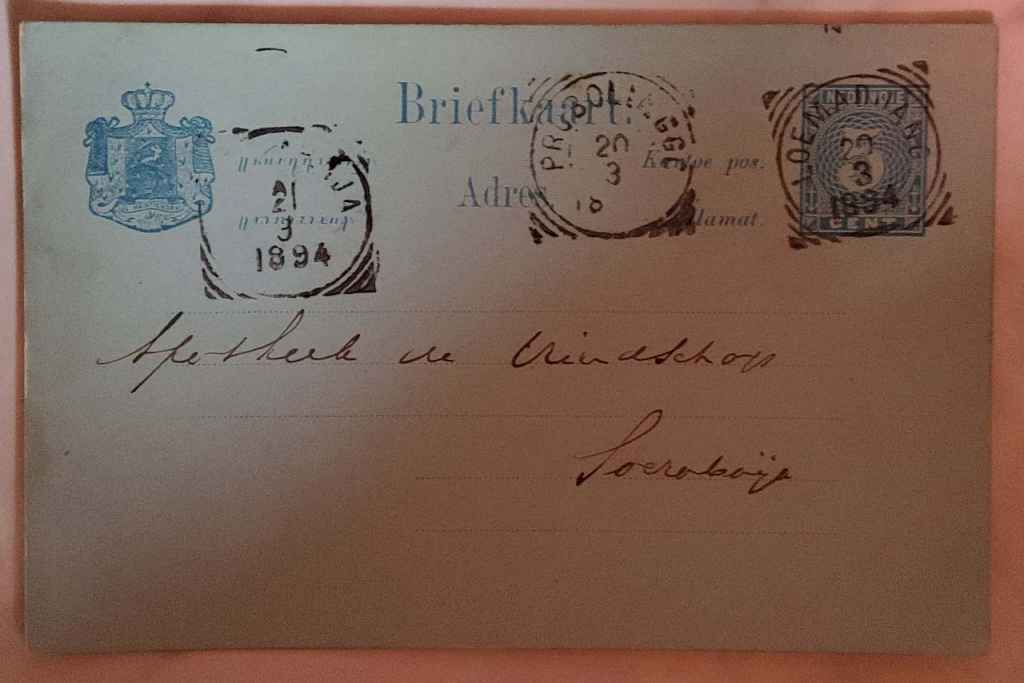 Briefkaart.
Kantoe pos.
Adres
alamat.
PROBOLINGGO
20
3
LOEMADJANG
20
3
1894
5
CENT
JA
21
3
1894
Apotheek de Vriendschap
Soerabaija